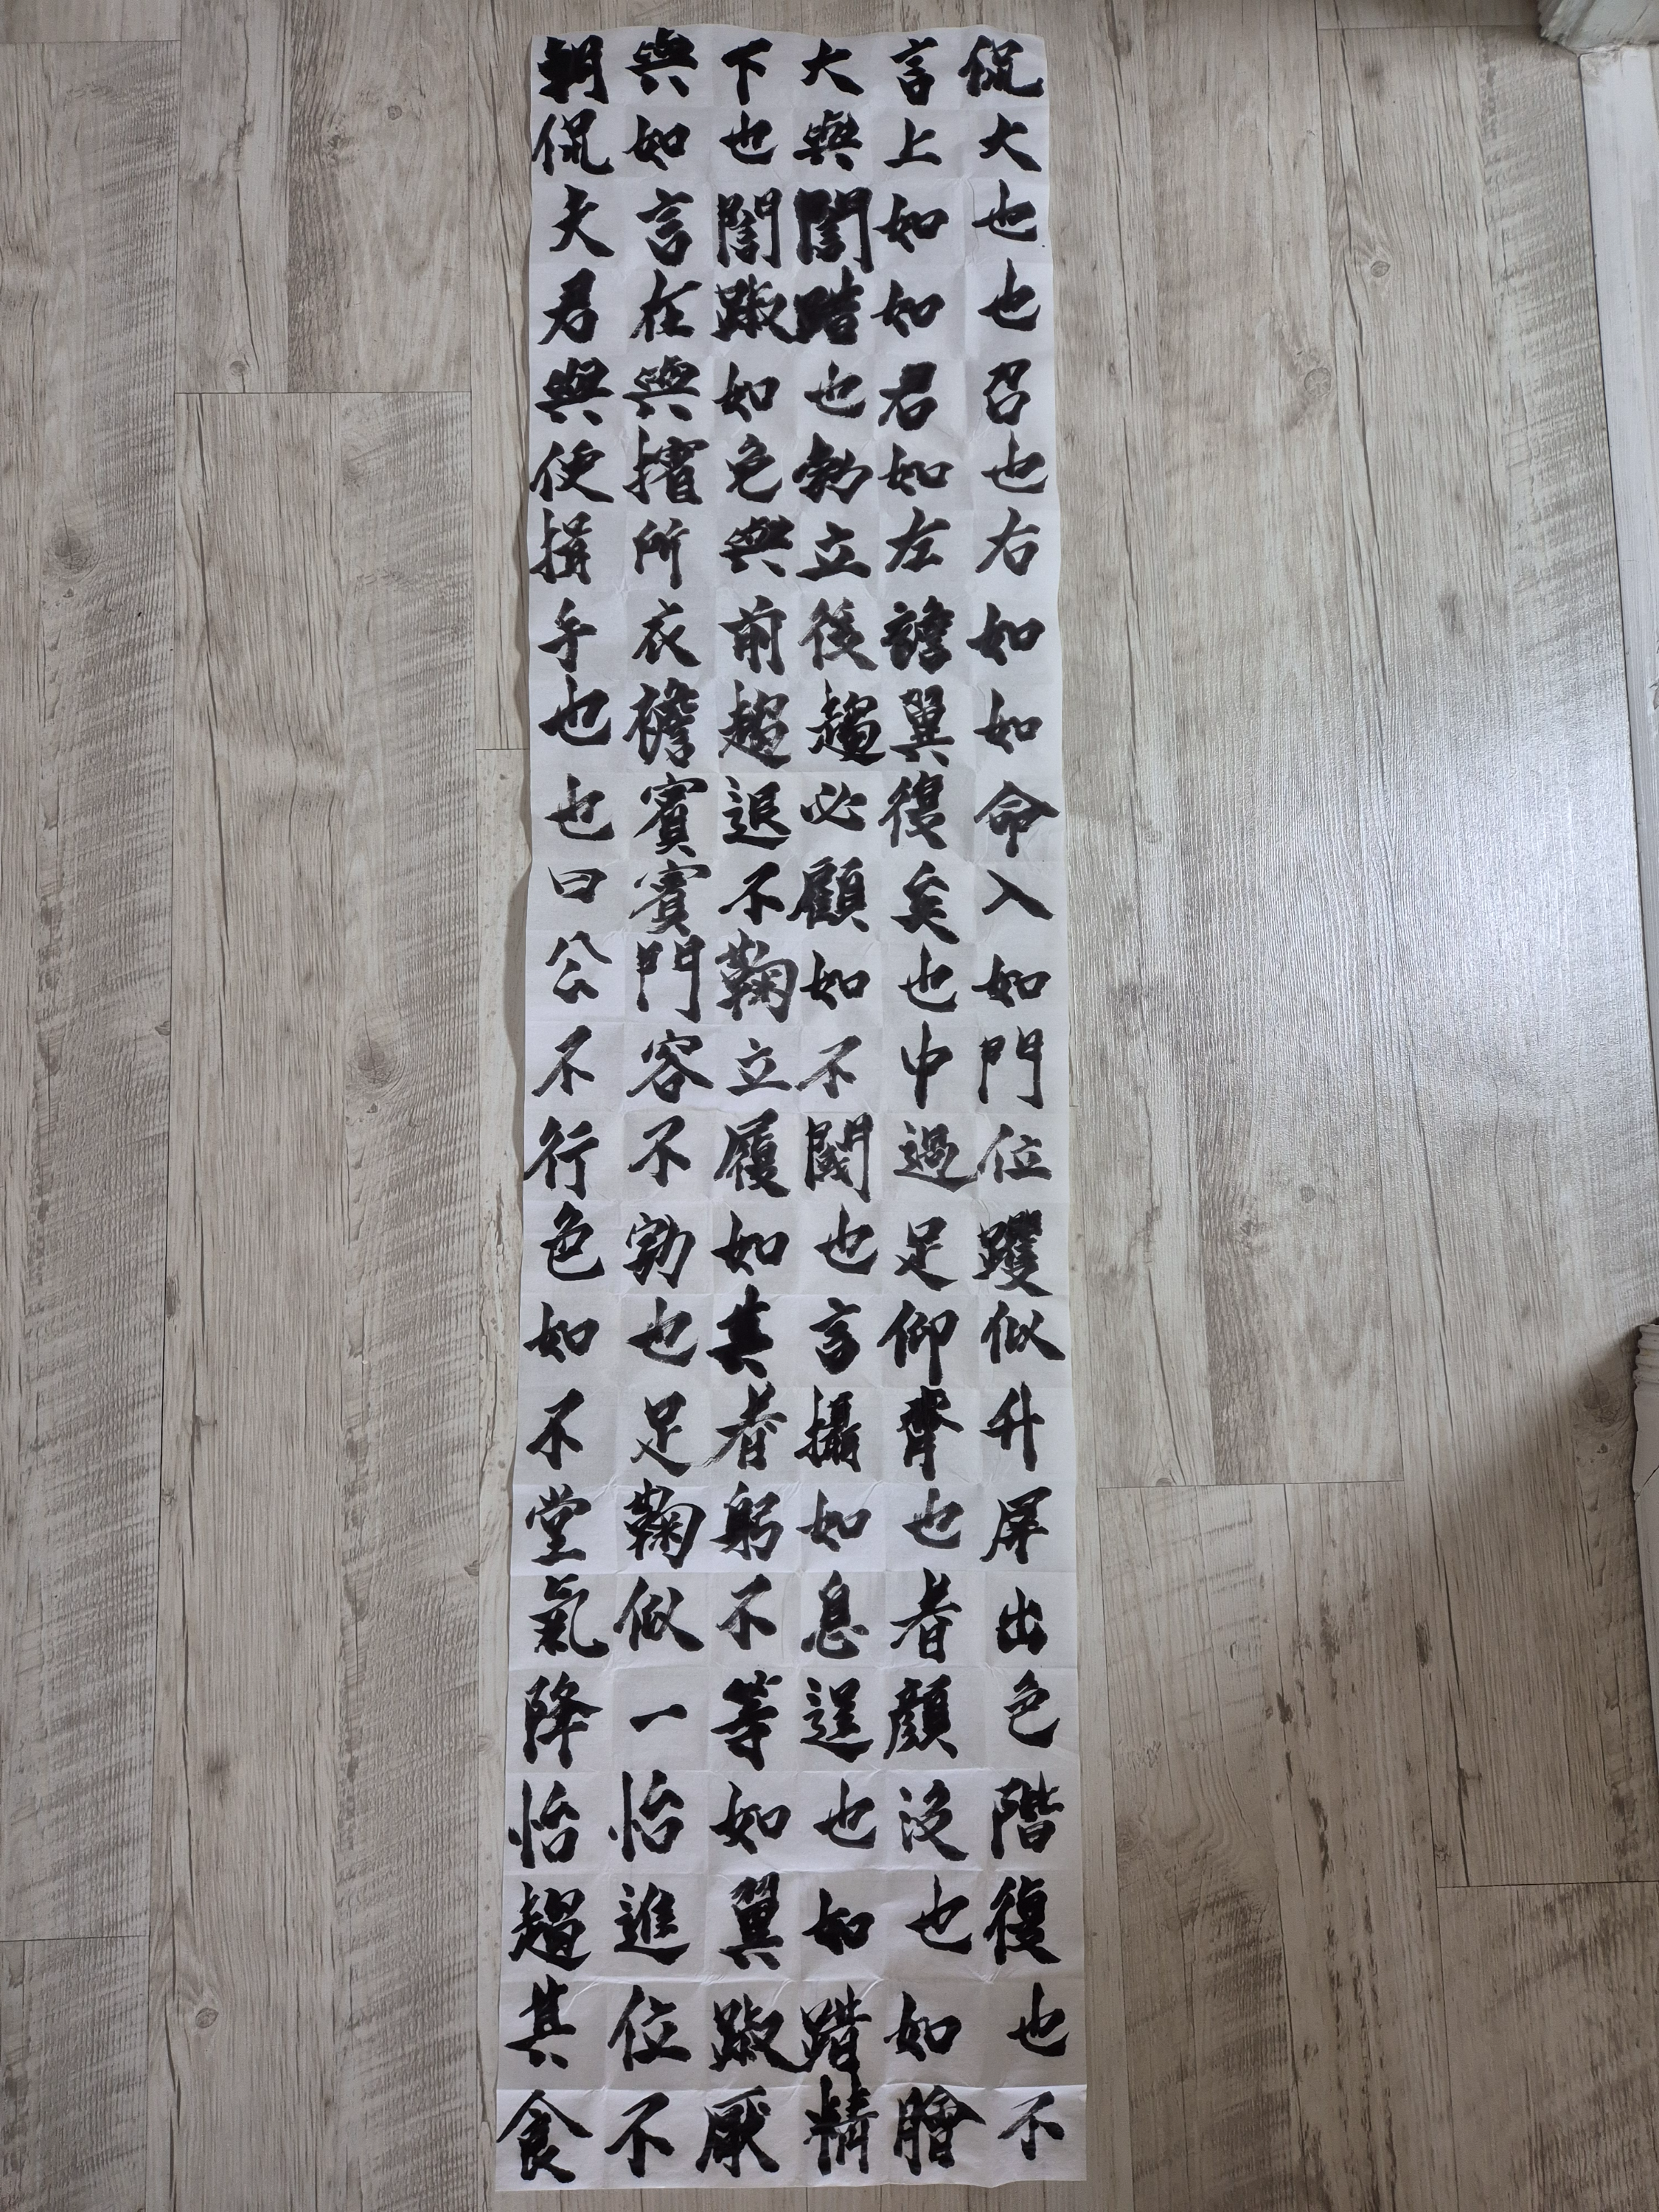 朝與下大言侃
侃如也與上大
夫言誾誾如也
君在踧踖如也
與與如也君召
使擯色勃如也
揖所與立左右
手衣前後譫如
也襜趨趨翼如
也賓退必復命
曰賓不顧矣入
公門鞠如也如
不容立不中門
行不履閾過位
色勃如也足躩
如也其言仰似
不足者攝齊升
堂鞠躬如也屏
氣似不息者出
降一等逞顏色
怡怡如也沒階
趨進翼如也復
其位踧踖如也
食不厭精膾不